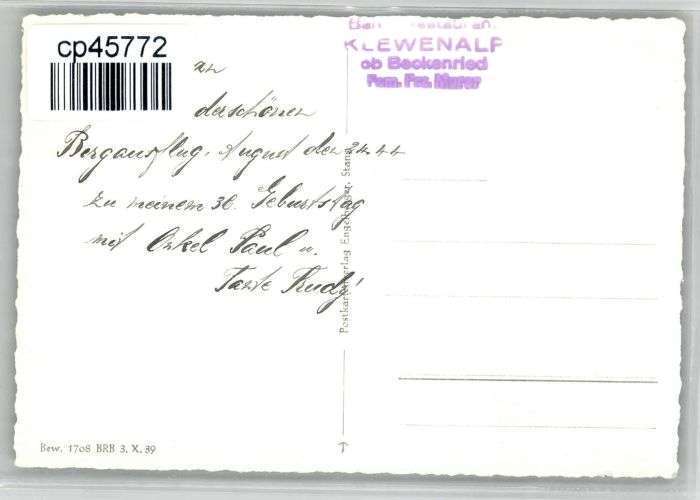 cp45772
KLEWENALP
ob Beckenried
Fam. Frz. Murer
an
der schönen
Bergausflug, August den 24. 44
zu meinem 30. Geburtstag
mit Onkel Paul u.
Tante Trudy!
Postkartenverlag Engelberger, Stans
Bew. 1708 BRB 3. X. 39